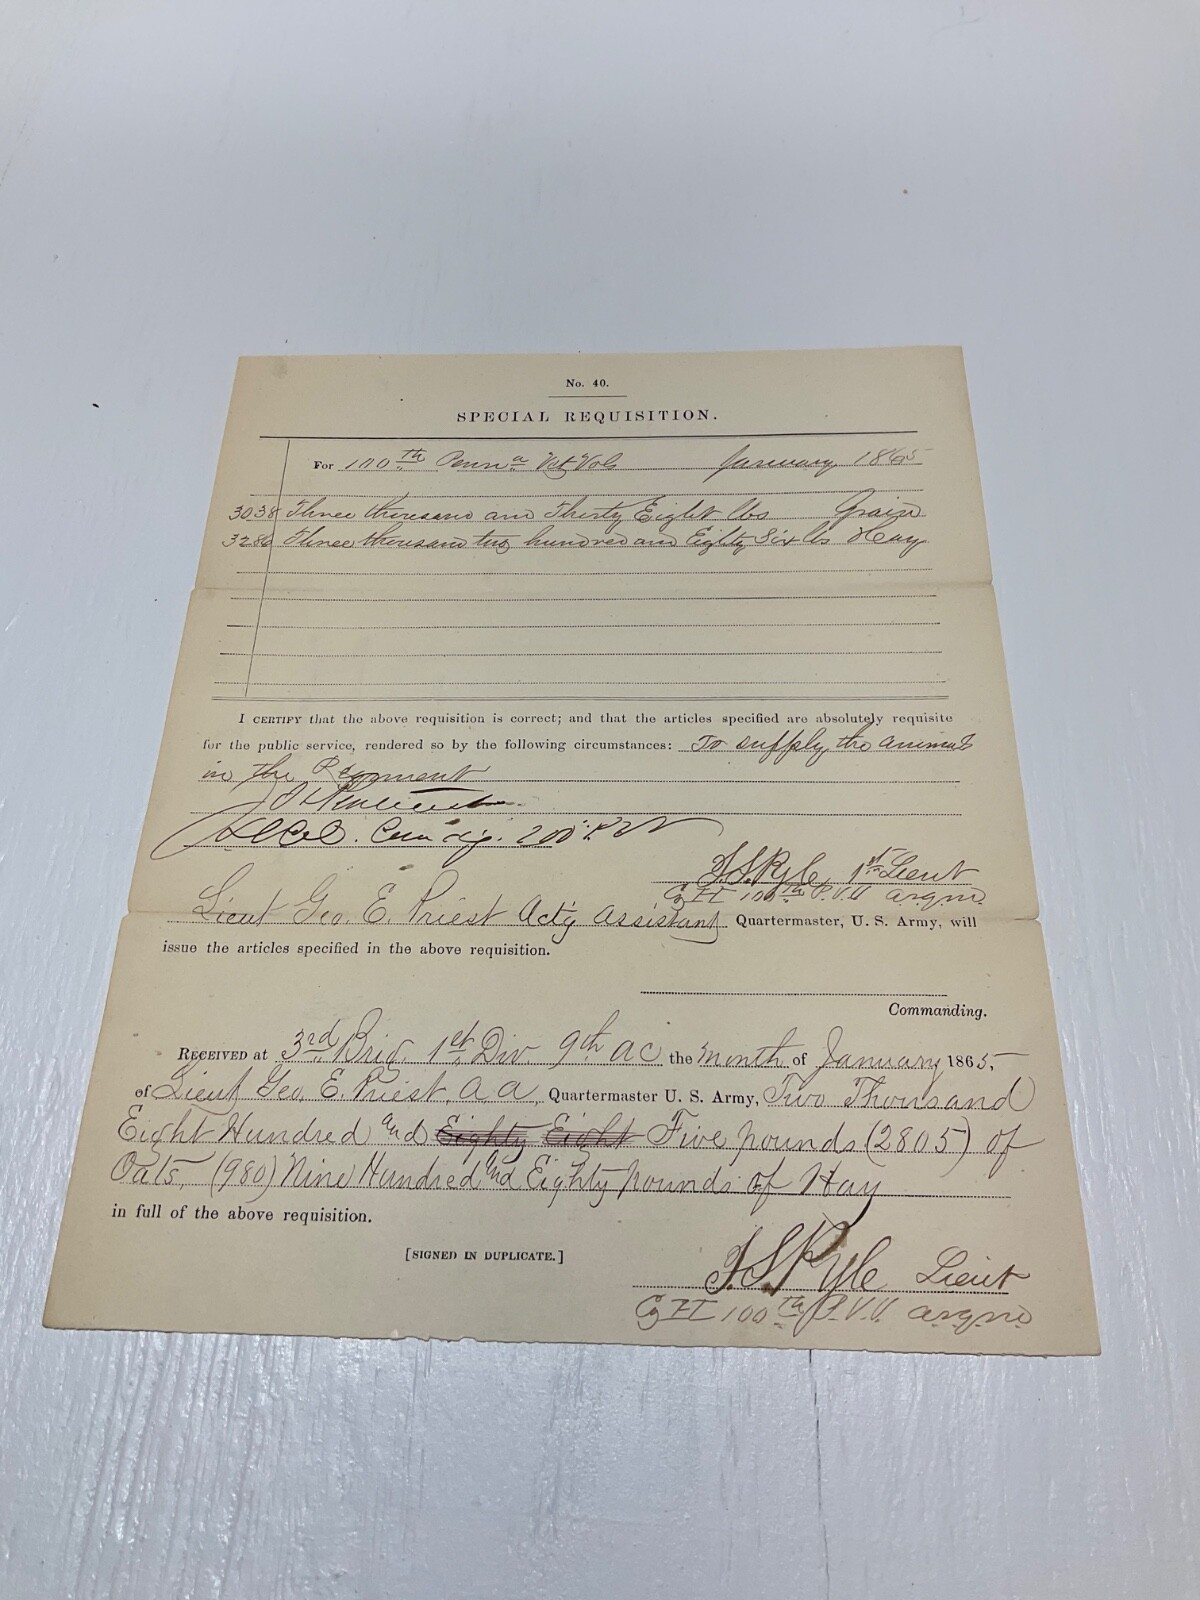 No. 40.
SPECIAL REQUISITION.
For 100th Penna Vet Vols January 1865
3038 Three thousand and Thirty Eight lbs Grain
3286 Three thousand two hundred and Eighty Six lbs Hay
I CERTIFY that the above requisition is correct; and that the articles specified are absolutely requisite
for the public service, rendered so by the following circumstances: To supply the animals
in the Regiment
Comdg. 100th
1st Lieut
Co H 100th P.V.V. a.r.q.m.
Lieut Geo. E. Priest Actg Assistant Quartermaster, U. S. Army, will
issue the articles specified in the above requisition.
Commanding.
RECEIVED at 3rd Brig. 1st Div 9th A C the month of January 1865,
of Lieut Geo. E. Priest, A. A. Quartermaster U. S. Army, Two Thousand
Eight Hundred and Eighty Eight Five pounds (2805) of
Oats, (980) Nine Hundred and Eighty pounds of Hay
in full of the above requisition.
[SIGNED IN DUPLICATE.]
Lieut
Co H 100th P.V.V. a.r.q.m.